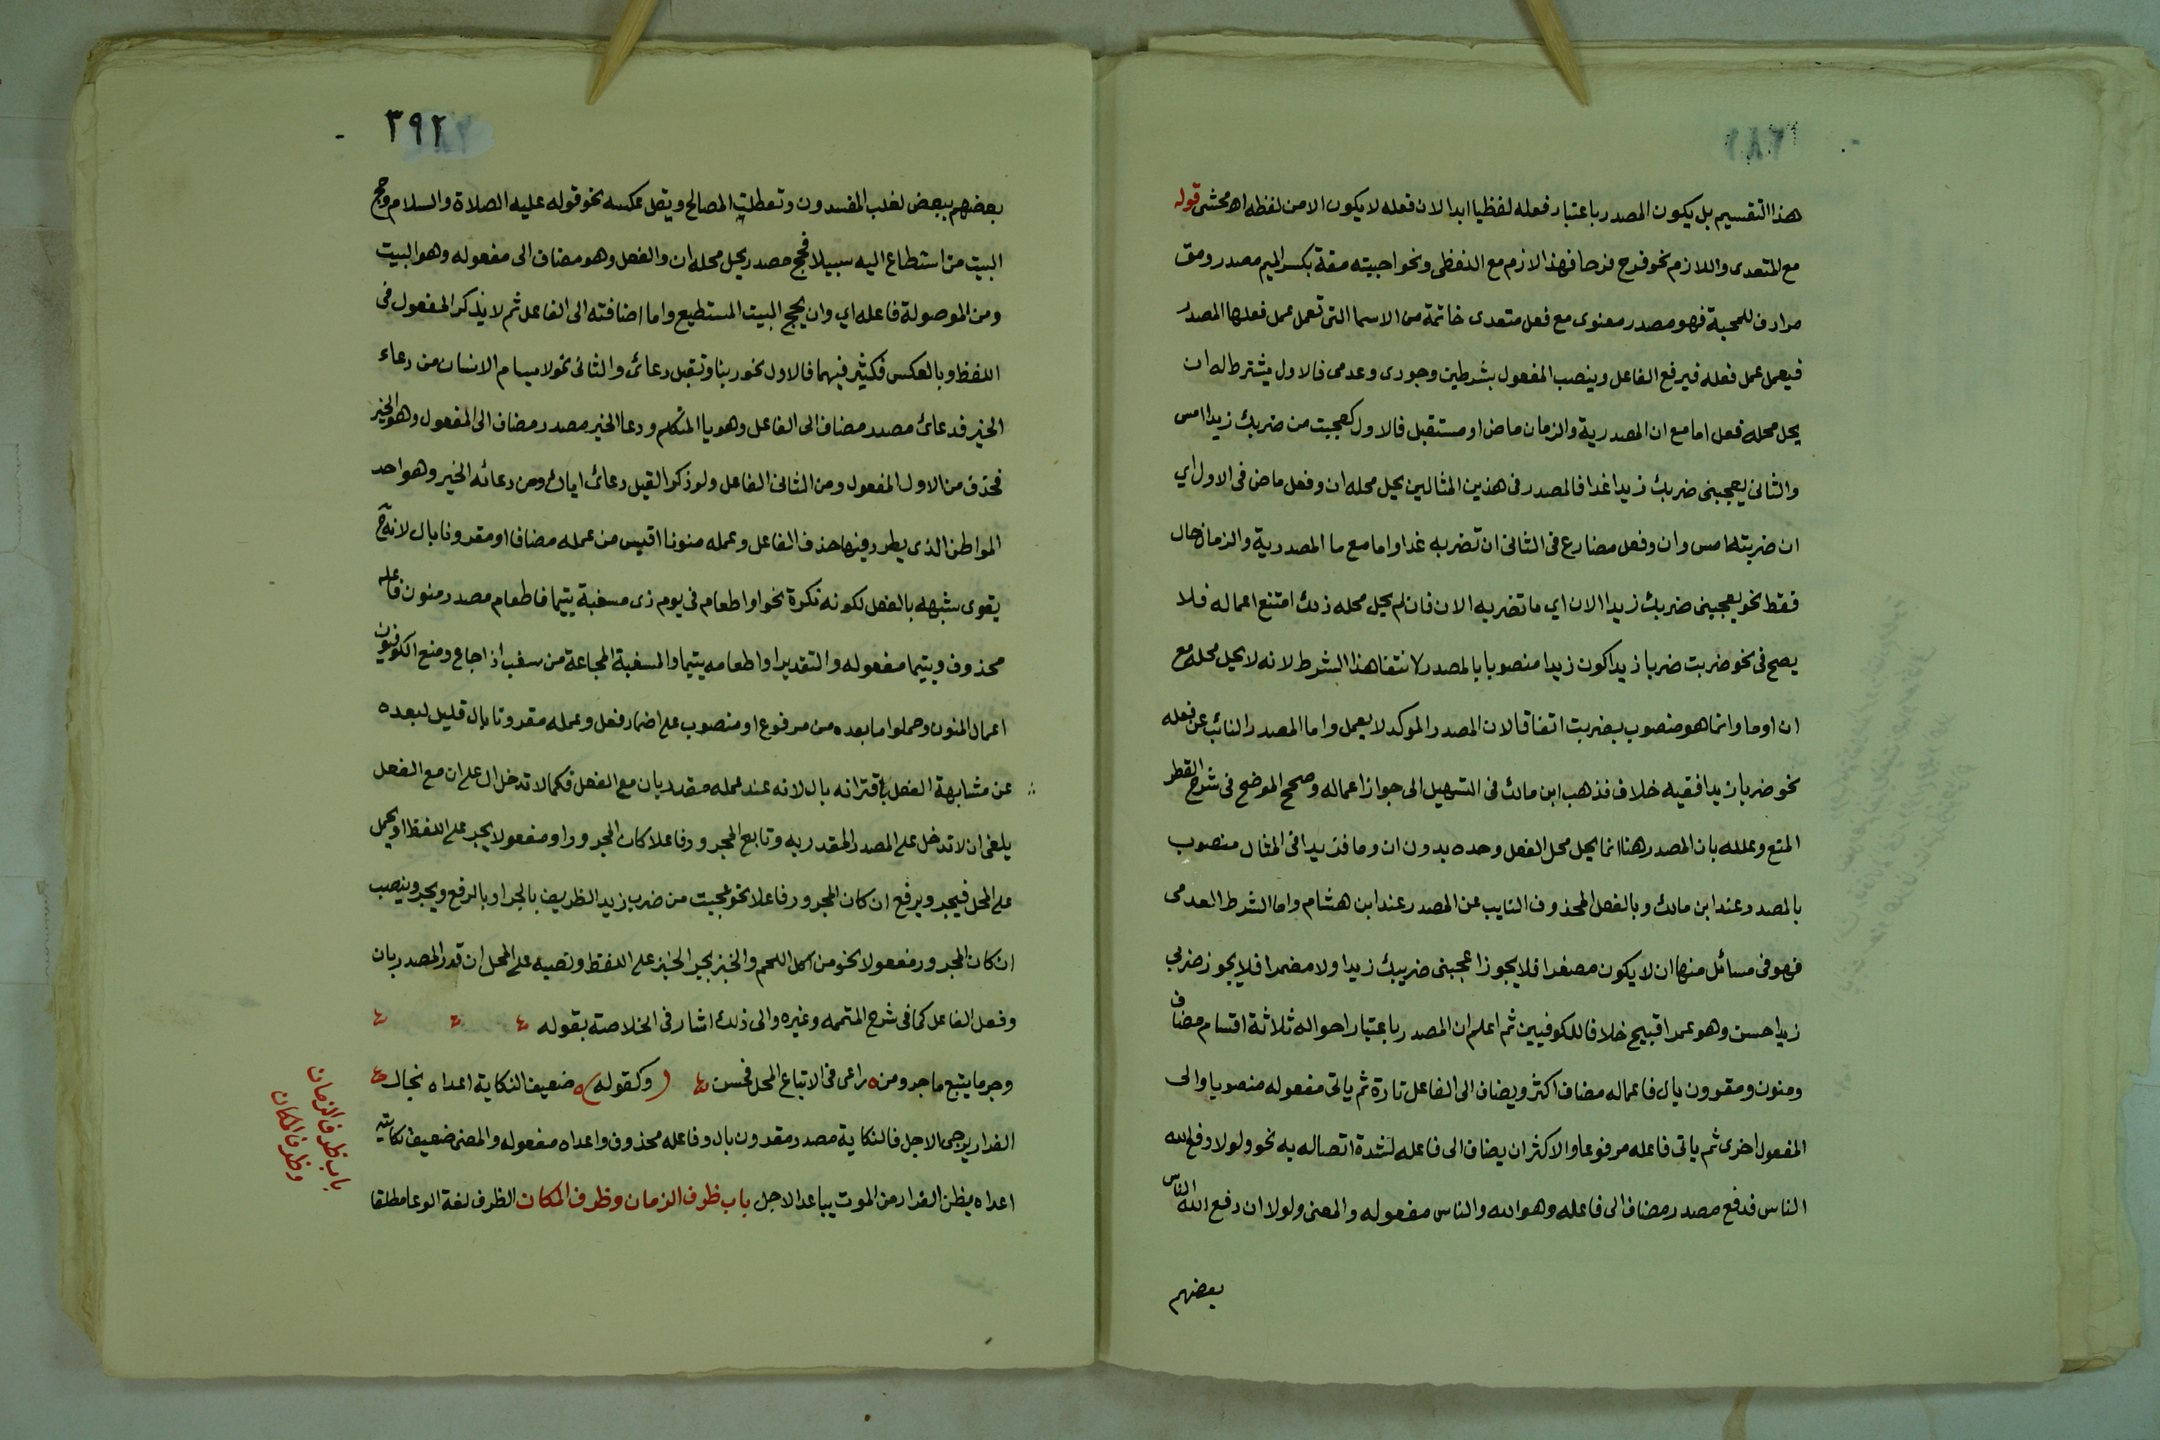 هذا التقسيم بل يكون المصدر باعتبار فعله لفظيا ابدا لان فعله لا يكون الا من لفظه اه محشى قوله
مع المتعدى واللازم نحو فرح فرحا فهذا لازم مع اللفظى ونحو احببته مقة بكسر الميم مصدر ومق
مرادف للمحبة فهو مصدر معنوى مع فعل متعدى خاتمة من الاسما التى تعمل عمل فعلها المصدر
فيعمل عمل فعله فيرفع الفاعل وينصب المفعول بشرطين وجودى وعدمى فالاول يشترط له ان
يحل محله فعل اما مع ان المصدرية والزمان ماض او مستقبل فالاول كعجبت من ضربك زيدا امس
والثانى يعجبنى ضربك زيدا غدا فالمصدر فى هذين المثالين يحل محله ان وفعل ماض فى الاول اي
ان ضربته امس وان وفعل مضارع فى الثانى ان تضربه غدا واما مع ما المصدرية والزمان حال
فقط نحو يعجبنى ضربك زيدا الان اي ما تضربه الان فان لم يحل محله ذلك امتنع اعماله فلا
يصح فى نحو ضربت ضربا زيدا كون زيدا منصوبا بالمصدر لانتفا هذا الشرط لانه لا يحل محله مع
ان او ما وانما هو منصوب بضربت اتفاقا لان المصدر الموكد لا يعمل واما المصدر النائب عن فعله
نحو ضربا زيدا ففيه خلاف فذهب ابن مالك فى التسهيل الى جواز اعماله وصحح الموضح فى شرح القطر
المنع وعلله بان المصدر هنا انما يحل محل الفعل وحده بدون ان وما فزيدا فى المثال منصوب
بالمصدر عند ابن مالك وبالفعل المحذوف النايب عن المصدر عند ابن هشام واما الشرط العدمى
فهو فى مسائل منها ان لا يكون مصغرا فلا يجوز اعجبنى ضريبك زيدا ولا مضمرا فلا يجوز ضربي
زيدا حسن وهو عمرا قبيح خلافا للكوفيين ثم اعلم ان المصدر باعتبار احواله ثلاثة اقسام مضاف
ومنون ومقرون بال فاعماله مضاف اكثر ويضاف الى الفاعل تارة ثم ياتى مفعوله منصوبا والى
المفعول اخرى ثم ياتى فاعله مرفوعا والاكثر ان يضاف الى فاعله لشدة اتصاله به نحو ولولا دفع الله
الناس فدفع مصدر مضاف الى فاعله وهو الله والناس مفعوله والمعنى ولولا ان دفع الله الناس
بعضهم
٣٩٢
بعضهم ببعض لغلب المفسدون وتعطلت المصالح ويقل عكسه نحو قوله عليه الصلاة والسلام وحج
البيت من استطاع اليه سبيلا فحج مصدر يحل محله ان والفعل وهو مضاف الى مفعوله وهو البيت
ومن الموصولة فاعله اي وان يحج البيت المستطيع واما اضافته الى الفاعل ثم لا يذكر المفعول فى
اللفظ وبالعكس فكثير فيهما فالاول نحو ربنا وتقبل دعائ والثانى نحو لا يسام الانسان من دعاء
الخير فدعائ مصدر مضاف الى الفاعل وهو يا المتكلم ودعا الخير مصدر مضاف الى المفعول وهو الخير
فحذف من الاول المفعول ومن الثانى الفاعل ولو ذكرا لقيل دعائ اياك ومن دعائه الخير وهو احد
المواطن الذى يطرد فيها حذف الفاعل وعمله منونا اقيس من عمله مضافا او مقرونا بال لانه ح
يقوى شبهه بالفعل لكونه نكرة نحو او اطعام فى يوم ذى مسغبة يتيما فاطعام مصدر منون فاعله
محذوف ويتيما مفعوله والتقدير او اطعامه يتيما والمسغبة المجاعة من سغب اذا جاع ومنع الكوفيون
اعمال المنون وحملوا ما بعده من مرفوع او منصوب على اضمار فعل وعمله مقرونا بال قليل لبعده
عن مشابهة الفعل باقترانه بال لانه عند عمله مقدر بان مع الفعل فكما لا تدخل ال على ان مع الفعل
يلغى ان لا تدخل على المصدر المقدر به وتابع المجرور وفاعلا كان المجرور او مفعولا يجر على اللفظ او يحمل
على المحل فيجر ويرفع ان كان المجرور فاعلا نحو عجبت من ضرب زيد الظريف بالجر او بالرفع ويجر وينصب
ان كان المجرور مفعولا نحو من اكل اللحم والخبز بجر الخبز على اللفظ ونصبه على المحل ان قدر المصدر بان
وفعل الفاعل كما فى شرح المتممه وغيره والى ذلك اشار فى الخلاصة بقوله
وجر ما يتبع ما جر ومن ه راعى فى الاتباع المحل فحسن (وكقوله) ه ضعيف النكاية اعداه يخال
الفرار يرجى الاجل فالنكاية مصدر مقرون بال وفاعله محذوف واعداه مفعوله والمعنى ضعيف نكايته
اعداه يظن الفرار من الموت يباعد الاجل باب ظرف الزمان وظرف المكان الظرف لغة الوعا مطلقا
باب ظرف الزمان
وظرف المكان